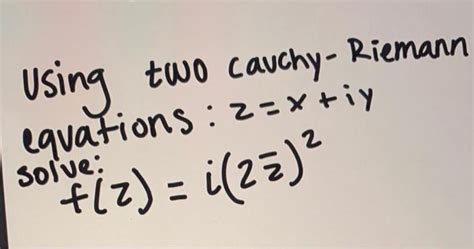 Using two Cauchy-Riemann
equations: z=x+iy
solve:
f(z) = i(2z̅)²